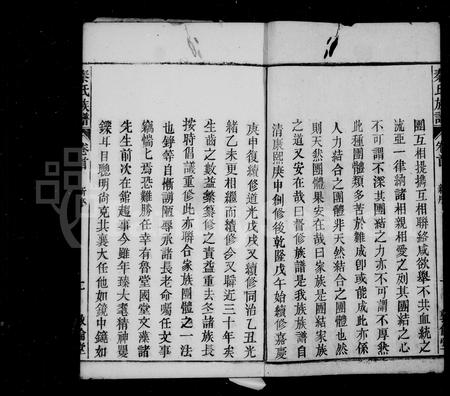 秦氏族譜
卷首
團互相提攜互相聯絡咸欲舉不共血統之
流亞一律納諸相親相愛之列其團結之心
不可謂不深其團結之力亦不可謂不厚然
此種團體類多苦於難成卽或能成此亦係
人力結合之團體非天然結合之團體也然
則天然團體果安在哉曰家族是團結家族
之道又安在哉曰督修族譜是我族族譜自
清康熙庚申創修後乾隆戊午始續修嘉慶
庚申復續修道光戊戌又續修同治乙丑光
緒乙未更相繼而續修今又聯近三十年矣
生齒之數益繁纂修之責益重去冬諸族長
按時倡議重修此亦聯合家族團體之一法
也錚等自慚謭陋辱承諸長老命囑任文事
竊惴惴焉恐難勝任幸有魯堂國堂文藻諸
先生前次在館趨事今雖年臻大耄精神矍
鑠耳目聰明尙克共襄大任他如鏡中鏡如
秦氏族譜
卷首
敦倫堂